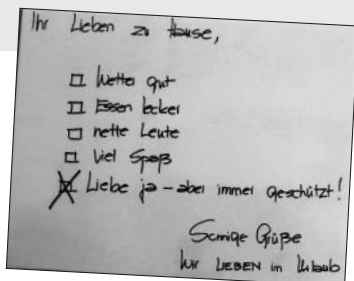 Ihr Lieben zu Hause,
Wetter gut
Essen lecker
nette Leute
viel Spaß
Liebe ja – aber immer geschützt!
Sonnige Grüße
Ihr LIEBEN in Urlaub